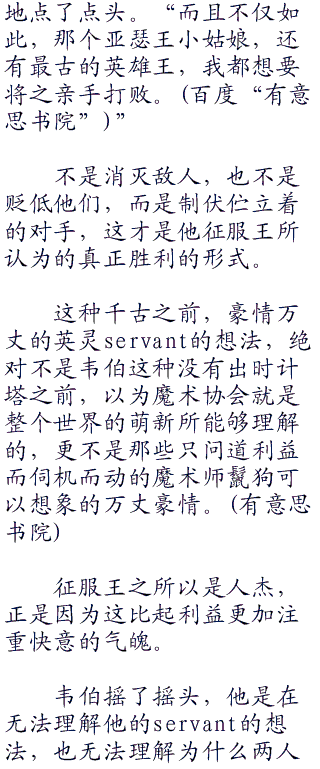 地点了点头。“而且不仅如
此，那个亚瑟王小姑娘，还
有最古的英雄王，我都想要
将之亲手打败。(百度“有意
思书院”)”
不是消灭敌人，也不是
贬低他们，而是制伏伫立着
的对手，这才是他征服王所
认为的真正胜利的形式。
这种千古之前，豪情万
丈的英灵servant的想法，绝
对不是韦伯这种没有出时计
塔之前，以为魔术协会就是
整个世界的萌新所能够理解
的，更不是那些只问道利益
而伺机而动的魔术师鬣狗可
以想象的万丈豪情。(有意思
书院)
征服王之所以是人杰，
正是因为这比起利益更加注
重快意的气魄。
韦伯摇了摇头，他是在
无法理解他的servant的想
法，也无法理解为什么两人